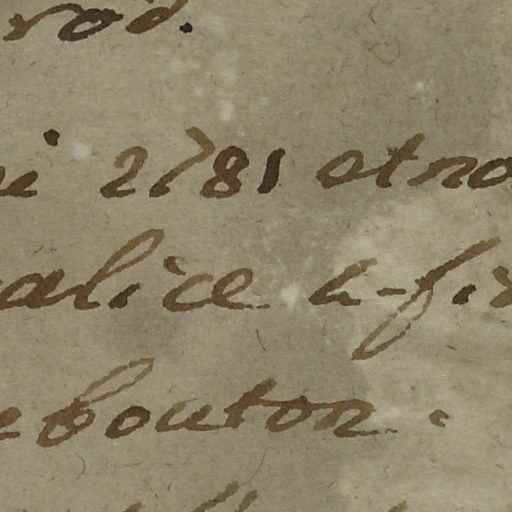 rod.
i 2781 et no
alice a-fi
ebouton.